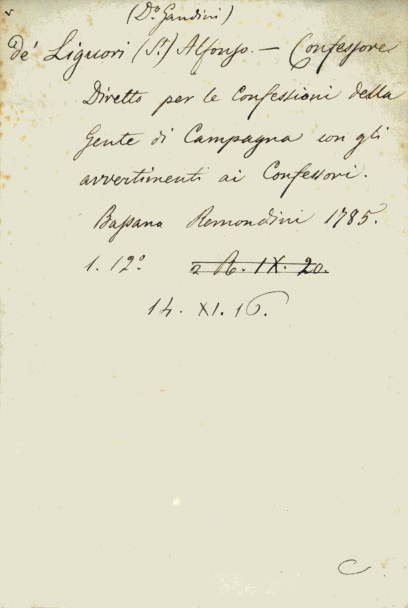 (Do. Gandini)
de' Liguori (St.) Alfonso. — Confessore
Diretto per le Confessioni della
Gente di Campagna con gli
avvertimenti ai Confessori.
Bassano Remondini 1785.
1. 12°. 2 R. IX. 20.
14. XI. 16.
C